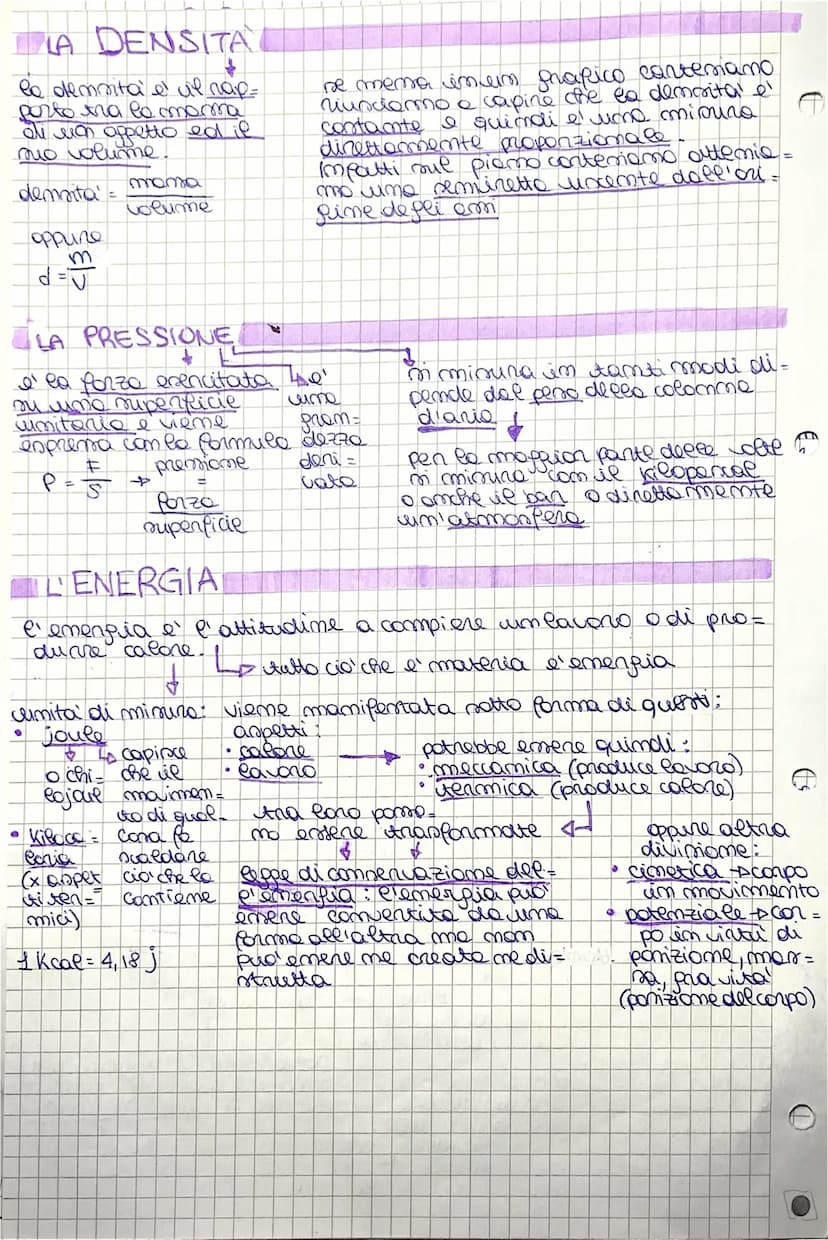 LA DENSITA'
la densità è il rap=
porto tra la massa
di un oggetto ed il
suo volume.
densità = massa
volume
oppure
d = m
V
se messa in un grafico cartesiano
riusciamo a capire che la densità è
costante e quindi è una misura
direttamente proporzionale.
Infatti sul piano cartesiano ottenia=
mo una semiretta uscente dall'ori=
gine degli assi
LA PRESSIONE
è la forza esercitata
su una superficie
unitaria e viene
espressa con la formula
P = F
S
→ pressione
=
forza
superficie
è
una
gran=
dezza
deri=
vata
si misura in tanti modi di=
pende dal peso della colonna
d'aria
per la maggior parte delle volte
si misura con il kilopascal
o anche il bar o direttamente
un'atmosfera
L'ENERGIA
l'energia è l'attitudine a compiere un lavoro o di pro=
durre calore.
→ tutto ciò che è materia è energia
unità di misura:
• joule
o chi=
lojoule
• kiloca=
loria
(x aspet
ti ter=
mici)
1 Kcal = 4,18 j
capire
che il
movimen=
to di qual-
cosa fa
scaldare
ciò che lo
contiene
viene manifestata sotto forma di questi
aspetti:
• calore
• lavoro
→ potrebbe essere quindi:
• meccanica (produce lavoro)
• termica (produce calore)
tra loro posso=
no essere trasformate
legge di conservazione del=
l'energia: l'energia può
essere convertita da una
forma all'altra ma non
può essere ne creata ne di=
strutta
oppure altra
divisione:
• cinetica → corpo
in movimento
• potenziale → cor=
po in virtù di
posizione, mas=
sa, gravità
(posizione del corpo)